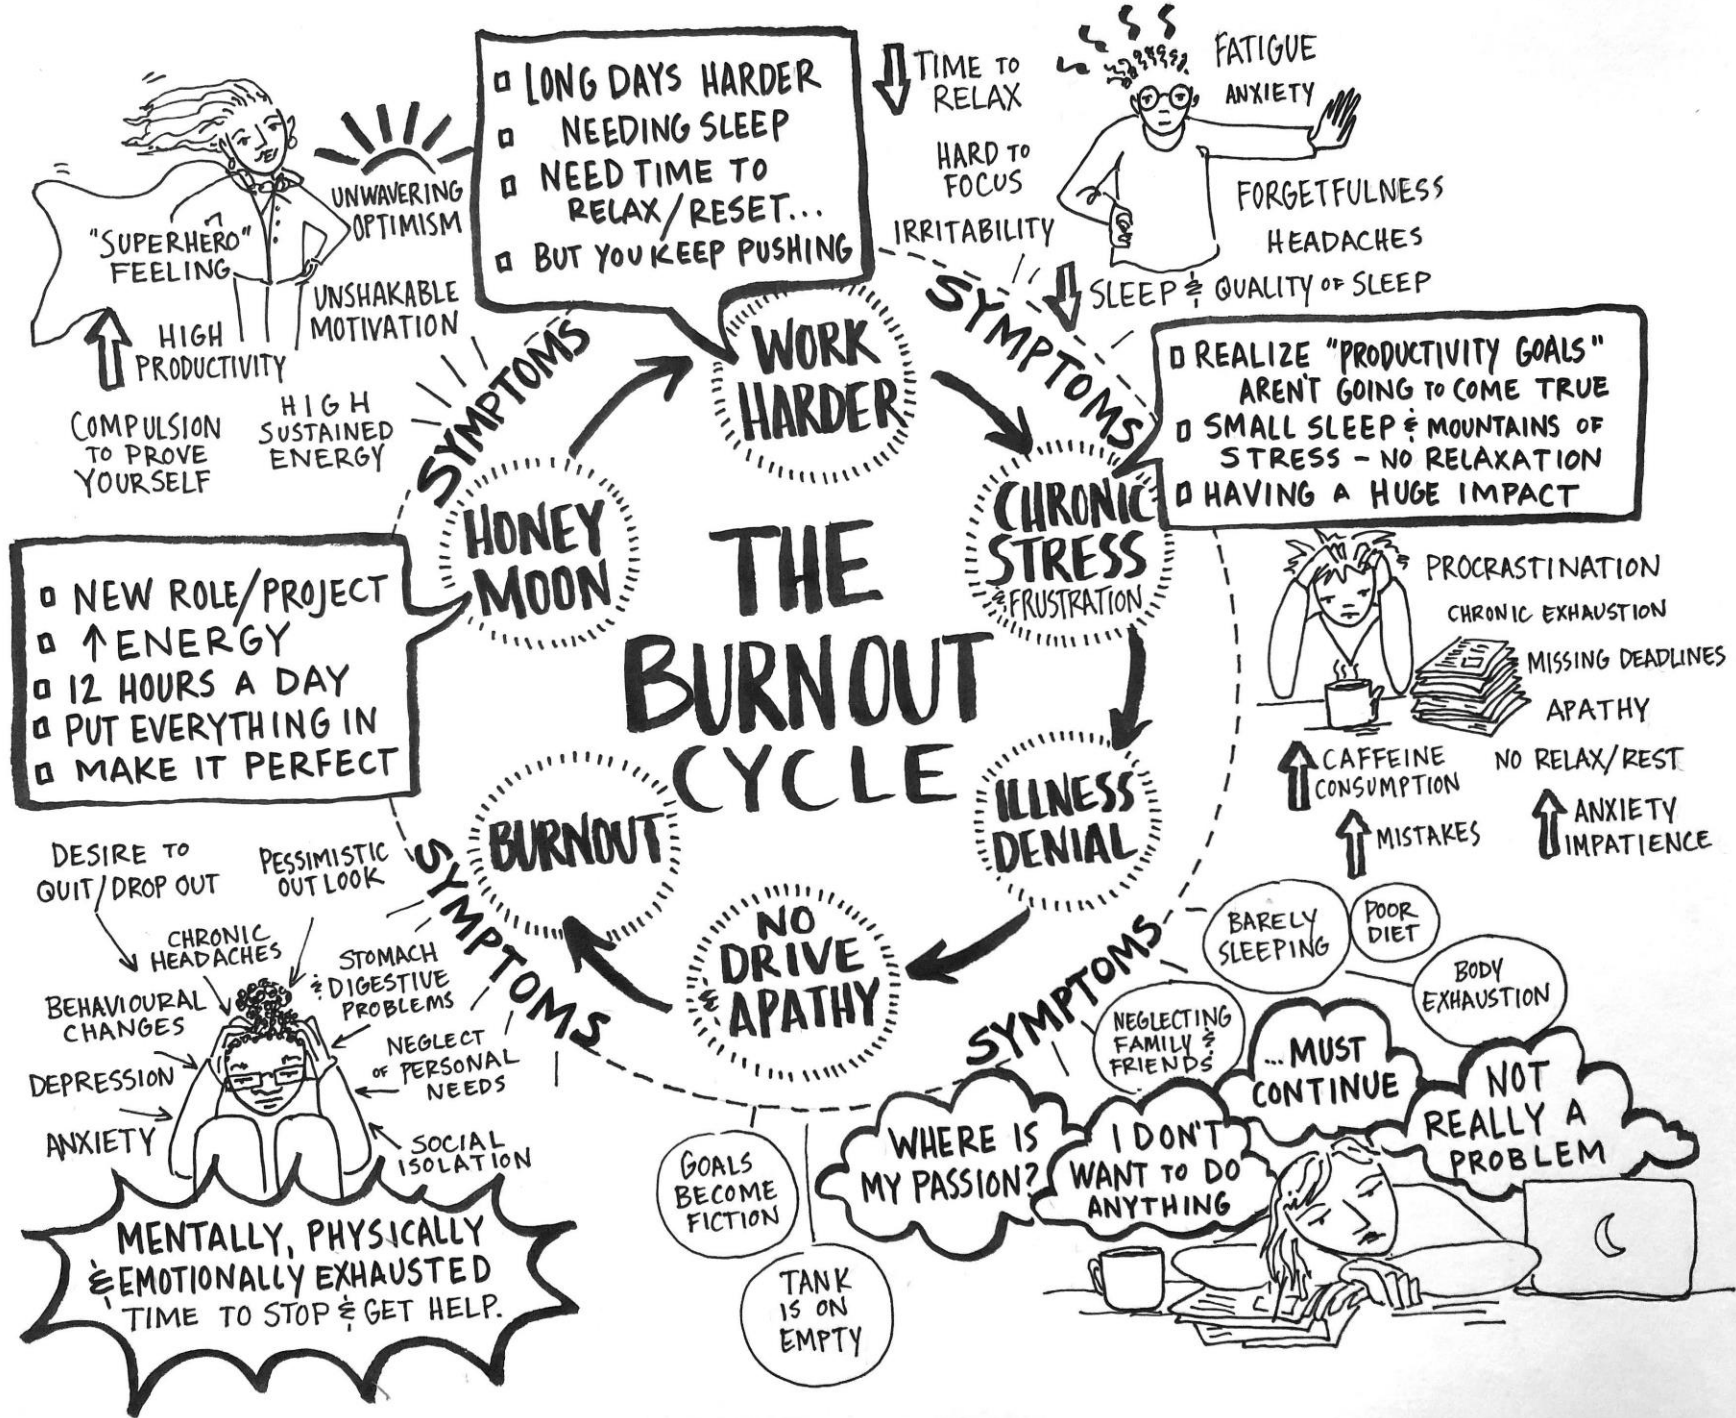 THE
BURNOUT
CYCLE
HONEY
MOON
NEW ROLE/PROJECT
↑ ENERGY
12 HOURS A DAY
PUT EVERYTHING IN
MAKE IT PERFECT
SYMPTOMS
"SUPERHERO"
FEELING
UNWAVERING
OPTIMISM
UNSHAKABLE
MOTIVATION
HIGH
PRODUCTIVITY
HIGH
SUSTAINED
ENERGY
COMPULSION
TO PROVE
YOURSELF
WORK
HARDER
LONG DAYS HARDER
NEEDING SLEEP
NEED TIME TO
RELAX/RESET...
BUT YOU KEEP PUSHING
SYMPTOMS
TIME TO
RELAX
HARD TO
FOCUS
IRRITABILITY
FATIGUE
ANXIETY
FORGETFULNESS
HEADACHES
SLEEP & QUALITY OF SLEEP
CHRONIC
STRESS
& FRUSTRATION
REALIZE "PRODUCTIVITY GOALS"
AREN'T GOING TO COME TRUE
SMALL SLEEP & MOUNTAINS OF
STRESS - NO RELAXATION
HAVING A HUGE IMPACT
PROCRASTINATION
CHRONIC EXHAUSTION
MISSING DEADLINES
APATHY
NO RELAX/REST
CAFFEINE
CONSUMPTION
MISTAKES
ANXIETY
IMPATIENCE
ILLNESS
DENIAL
SYMPTOMS
BARELY
SLEEPING
POOR
DIET
BODY
EXHAUSTION
NEGLECTING
FAMILY &
FRIENDS
...MUST
CONTINUE
NOT
REALLY A
PROBLEM
WHERE IS
MY PASSION?
I DON'T
WANT TO DO
ANYTHING
NO
DRIVE
& APATHY
GOALS
BECOME
FICTION
TANK
IS ON
EMPTY
BURNOUT
SYMPTOMS
DESIRE TO
QUIT/DROP OUT
PESSIMISTIC
OUTLOOK
CHRONIC
HEADACHES
STOMACH
& DIGESTIVE
PROBLEMS
BEHAVIOURAL
CHANGES
NEGLECT
OF PERSONAL
NEEDS
DEPRESSION
ANXIETY
SOCIAL
ISOLATION
MENTALLY, PHYSICALLY
& EMOTIONALLY EXHAUSTED
TIME TO STOP & GET HELP.